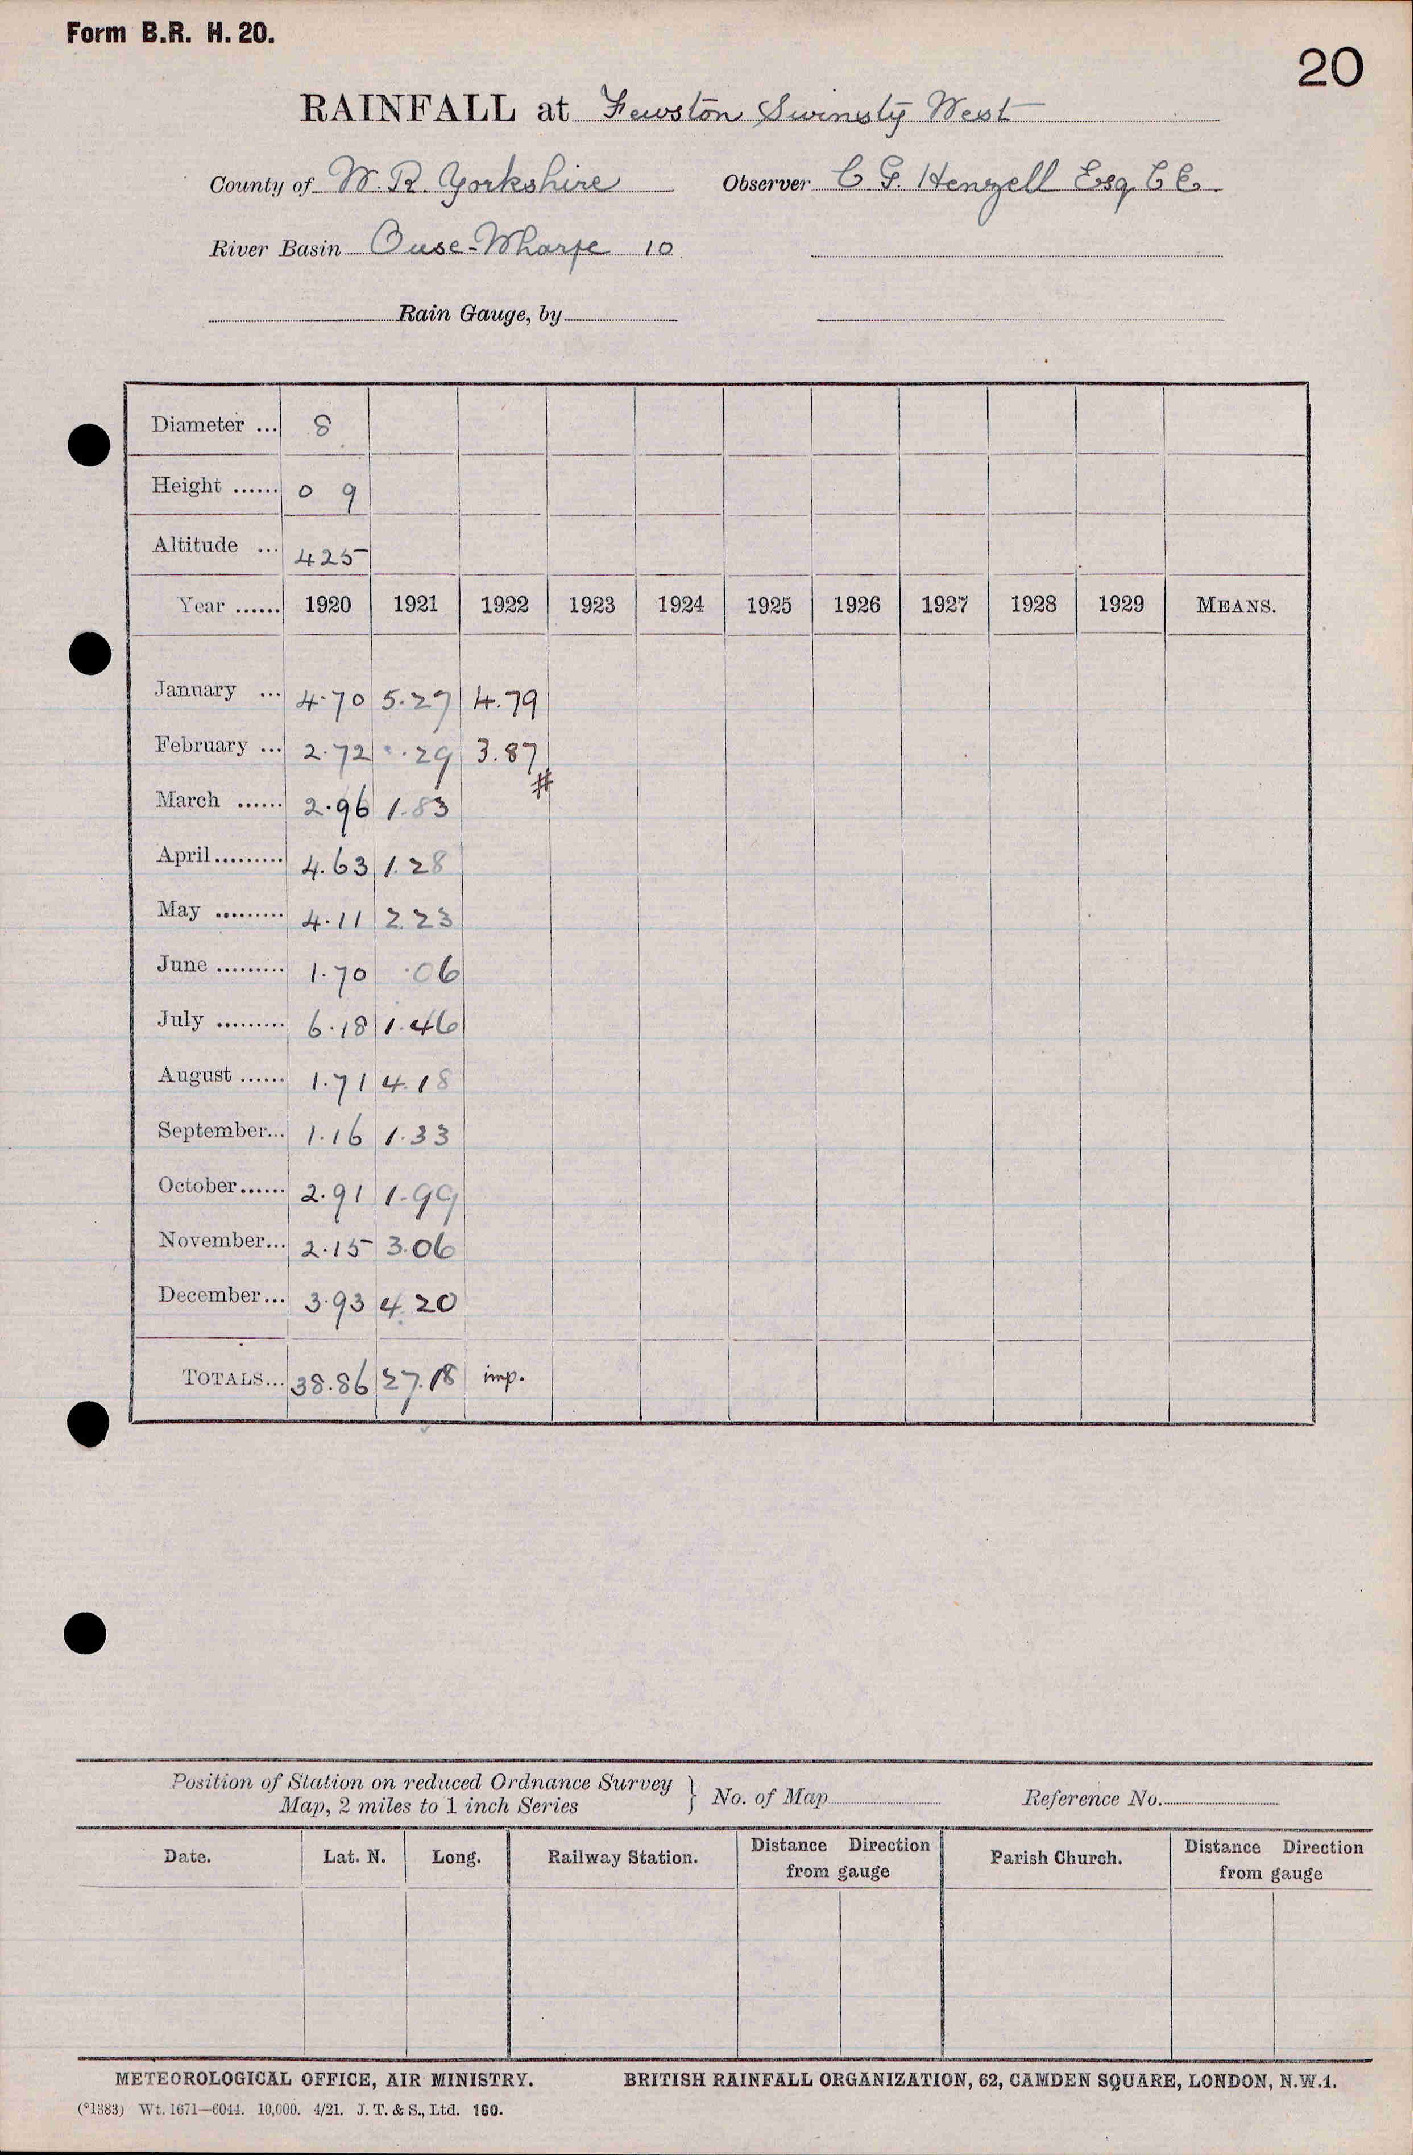 Form B.R. H. 20.
20
RAINFALL at Fewston Swinsty West
County of W. R. Yorkshire Observer C G. Henzell Esq C E.
River Basin Ouse-Wharfe 10
Rain Gauge, by
Diameter ... 8
Height ...... 0 9
Altitude ... 425
Year ...... 1920 1921 1922 1923 1924 1925 1926 1927 1928 1929 MEANS.
January ... 4.70 5.27 4.79
February ... 2.72 .29 3.87
#
March ...... 2.96 1.83
April ......... 4.63 1.28
May ......... 4.11 2.23
June ......... 1.70 .06
July ......... 6.18 1.46
August ...... 1.71 4.18
September... 1.16 1.33
October...... 2.91 1.99
November... 2.15 3.06
December... 3.93 4.20
TOTALS... 38.86 27.18 imp.
Position of Station on reduced Ordnance Survey
Map, 2 miles to 1 inch Series } No. of Map Reference No.
Date. Lat. N. Long. Railway Station. Distance Direction from gauge Parish Church. Distance Direction from gauge
METEOROLOGICAL OFFICE, AIR MINISTRY. BRITISH RAINFALL ORGANIZATION, 62, CAMDEN SQUARE, LONDON, N.W.1.
(*1383) Wt. 1671—6044. 10,000. 4/21. J. T. & S., Ltd. 160.